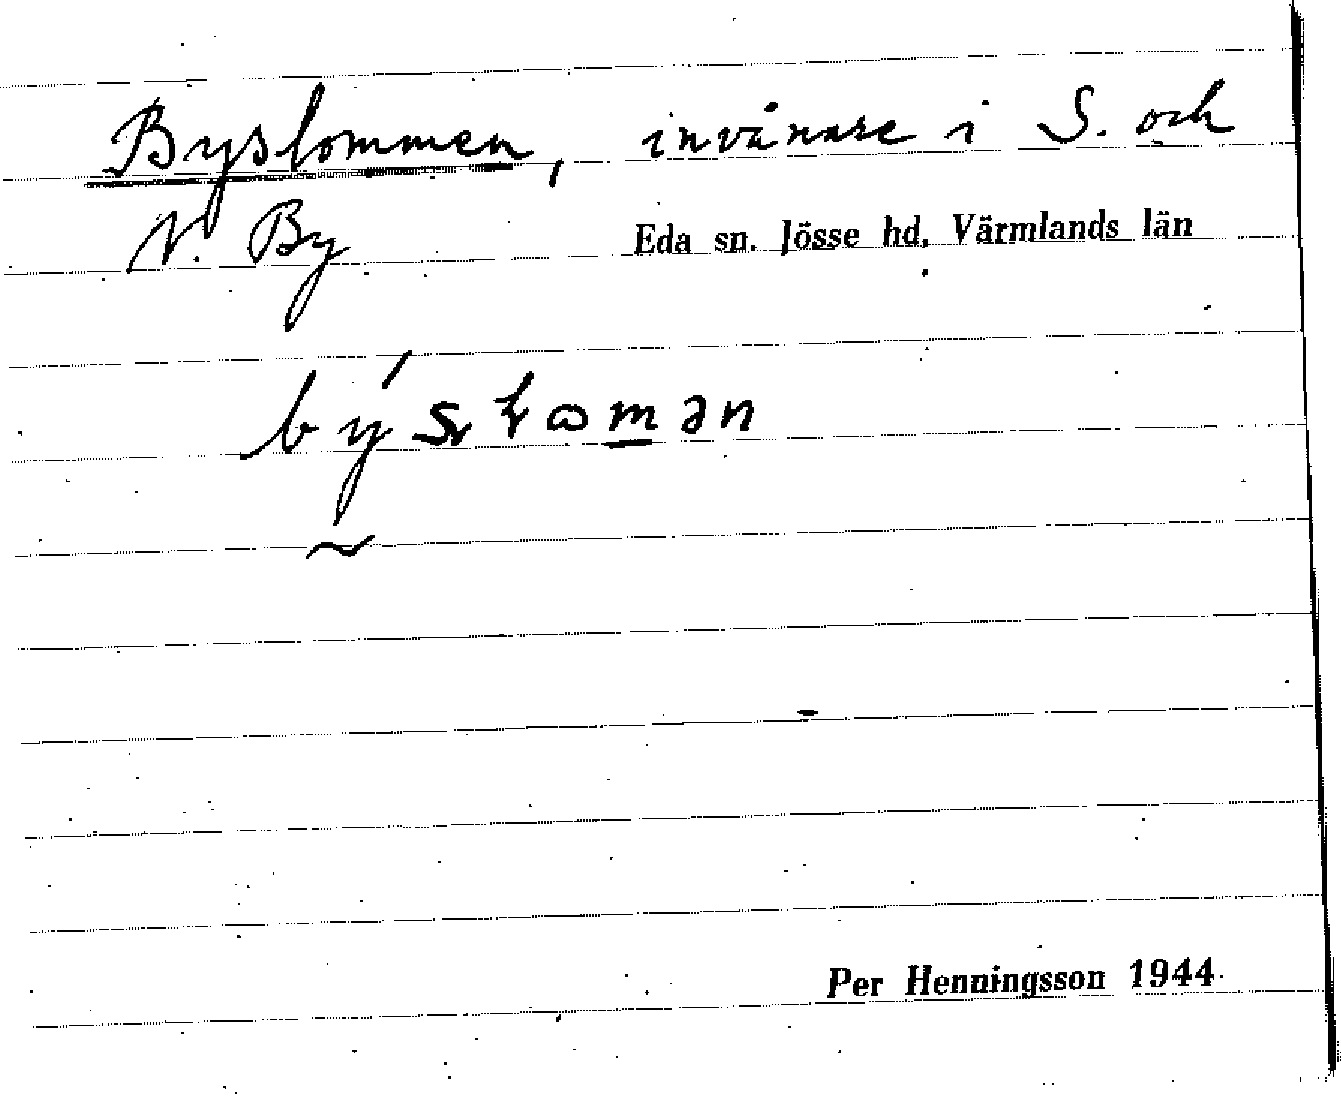 Byslommen, invånare i S. och
N. By
Eda sn. Jösse hd, Värmlands län
Per Henningsson 1944